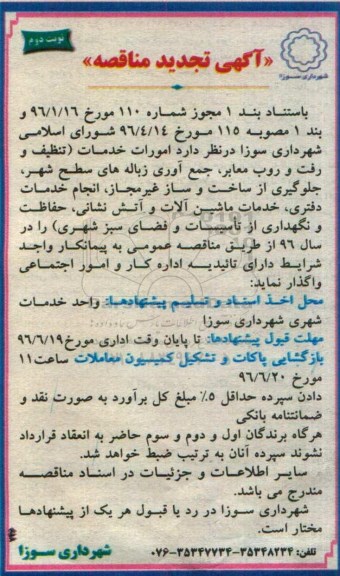 نوبت دوم
«آگهی تجدید مناقصه»
شهرداری سوزا
باستناد بند ۱ مجوز شماره ۱۱۰ مورخ ۹۶/۱/۱۶ و
بند ۱ مصوبه ۱۱۵ مورخ ۹۶/۴/۱۴ شورای اسلامی
شهرداری سوزا درنظر دارد امورات خدمات (تنظیف و
رفت و روب معابر، جمع آوری زباله های سطح شهر،
جلوگیری از ساخت و ساز غیرمجاز، انجام خدمات
دفتری، خدمات ماشین آلات و آتش نشانی، حفاظت
و نگهداری از تأسیسات و فضای سبز شهری) را در
سال ۹۶ از طریق مناقصه عمومی به پیمانکار واجد
شرایط دارای تائیدیه اداره کار و امور اجتماعی
واگذار نماید:
محل اخذ اسناد و تسلیم پیشنهادها: واحد خدمات
شهری شهرداری سوزا
مهلت قبول پیشنهادها: تا پایان وقت اداری مورخ ۹۶/۶/۱۹
بازگشایی پاکات و تشکیل کمیسیون معاملات ساعت ۱۱
مورخ ۹۶/۶/۲۰
دادن سپرده حداقل ۵٪ مبلغ کل برآورد به صورت نقد و
ضمانتنامه بانکی
هرگاه برندگان اول و دوم و سوم حاضر به انعقاد قرارداد
نشوند سپرده آنان به ترتیب ضبط خواهد شد.
سایر اطلاعات و جزئیات در اسناد مناقصه
مندرج می باشد.
شهرداری سوزا در رد یا قبول هر یک از پیشنهادها
مختار است.
تلفن: ۳۵۳۴۸۲۳۴-۳۵۳۴۷۷۳۴-۰۷۶
شهرداری سوزا